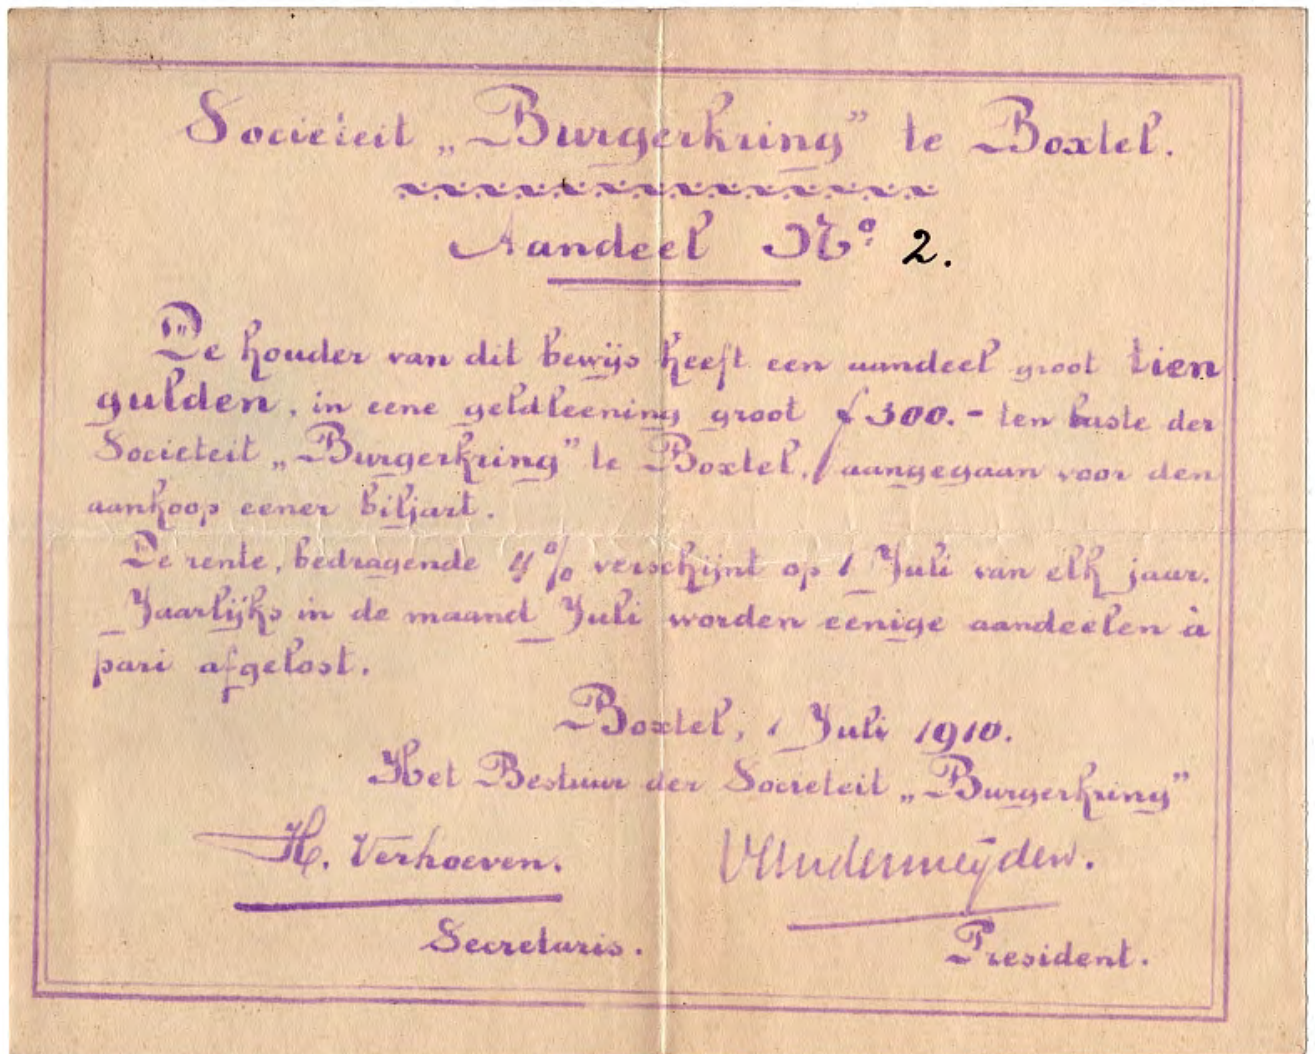 Societeit „Burgerkring” te Boxtel.
Aandeel No. 2.
De houder van dit bewijs heeft een aandeel groot tien
gulden, in eene geldleening groot f 300.- ten laste der
Societeit „Burgerkring” te Boxtel, aangegaan voor den
aankoop eener biljart.
De rente, bedragende 4% verschijnt op 1 Juli van elk jaar.
Jaarlijks in de maand Juli worden eenige aandeelen à
pari afgelost.
Boxtel, 1 Juli 1910.
Het Bestuur der Societeit „Burgerkring”
H. Verhoeven.
Secretaris.
President.